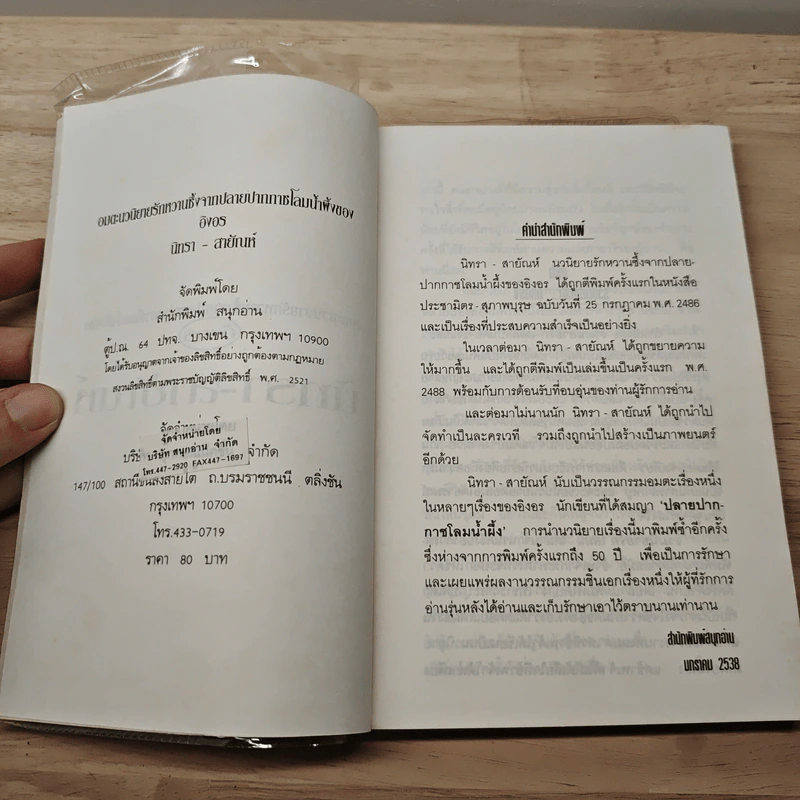 อมตะนวนิยายรักหวานซึ้งจากปลายปากกาชโลมน้ำผึ้งของ
อิงอร
นิทรา - สายัณห์
จัดพิมพ์โดย
สำนักพิมพ์ สนุกอ่าน
ตู้ป.ณ. 64 ปทจ. บางเขน กรุงเทพฯ 10900
โดยได้รับอนุญาตจากเจ้าของลิขสิทธิ์อย่างถูกต้องตามกฎหมาย
สงวนลิขสิทธิ์ตามพระราชบัญญัติลิขสิทธิ์ พ.ศ. 2521
จัดจำหน่ายโดย
บริษัท สนุกอ่าน จำกัด
โทร.447-2920 FAX447-1697
จำกัด
147/100 สถานีขนส่งสายใต้ ถ.บรมราชชนนี ตลิ่งชัน
กรุงเทพฯ 10700
โทร.433-0719
ราคา 80 บาท
คำนำสำนักพิมพ์
นิทรา - สายัณห์ นวนิยายรักหวานซึ้งจากปลาย-
ปากกาชโลมน้ำผึ้งของอิงอร ได้ถูกตีพิมพ์ครั้งแรกในหนังสือ
ประชามิตร - สุภาพบุรุษ ฉบับวันที่ 25 กรกฎาคม พ.ศ. 2486
และเป็นเรื่องที่ประสบความสำเร็จเป็นอย่างยิ่ง
ในเวลาต่อมา นิทรา - สายัณห์ ได้ถูกขยายความ
ให้มากขึ้น และได้ถูกตีพิมพ์เป็นเล่มขึ้นเป็นครั้งแรก พ.ศ.
2488 พร้อมกับการต้อนรับที่อบอุ่นของท่านผู้รักการอ่าน
และต่อมาไม่นานนัก นิทรา - สายัณห์ ได้ถูกนำไป
จัดทำเป็นละครเวที รวมถึงถูกนำไปสร้างเป็นภาพยนตร์
อีกด้วย
นิทรา - สายัณห์ นับเป็นวรรณกรรมอมตะเรื่องหนึ่ง
ในหลายๆเรื่องของอิงอร นักเขียนที่ได้สมญา 'ปลายปาก-
กาชโลมน้ำผึ้ง' การนำนวนิยายเรื่องนี้มาพิมพ์ซ้ำอีกครั้ง
ซึ่งห่างจากการพิมพ์ครั้งแรกถึง 50 ปี เพื่อเป็นการรักษา
และเผยแพร่ผลงานวรรณกรรมชิ้นเอกเรื่องหนึ่งให้ผู้ที่รักการ
อ่านรุ่นหลังได้อ่านและเก็บรักษาเอาไว้ตราบนานเท่านาน
สำนักพิมพ์สนุกอ่าน
มกราคม 2538